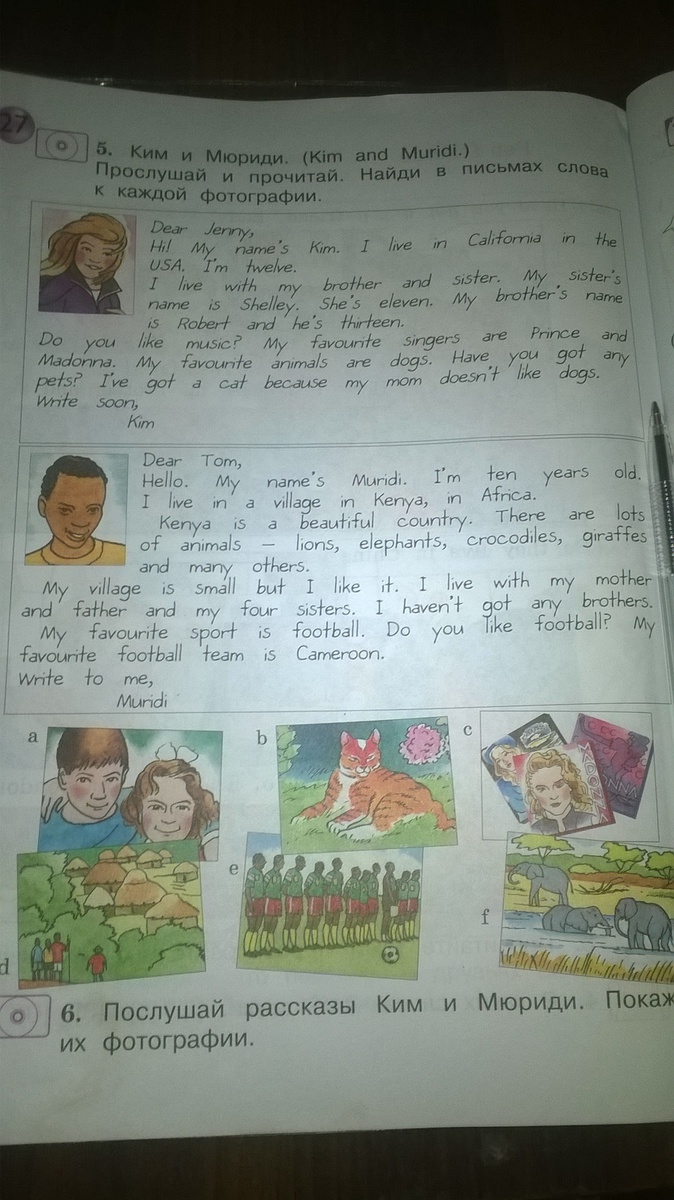 27
5. Ким и Мюриди. (Kim and Muridi.)
Прослушай и прочитай. Найди в письмах слова
к каждой фотографии.
Dear Jenny,
Hi! My name's Kim. I live in California in the
USA. I'm twelve.
I live with my brother and sister. My sister's
name is Shelley. She's eleven. My brother's name
is Robert and he's thirteen.
Do you like music? My favourite singers are Prince and
Madonna. My favourite animals are dogs. Have you got any
pets? I've got a cat because my mom doesn't like dogs.
Write soon,
Kim
Dear Tom,
Hello. My name's Muridi. I'm ten years old.
I live in a village in Kenya, in Africa.
Kenya is a beautiful country. There are lots
of animals — lions, elephants, crocodiles, giraffes
and many others.
My village is small but I like it. I live with my mother
and father and my four sisters. I haven't got any brothers.
My favourite sport is football. Do you like football? My
favourite football team is Cameroon.
Write to me,
Muridi
a
b
c
d
e
f
6. Послушай рассказы Ким и Мюриди. Покаж
их фотографии.